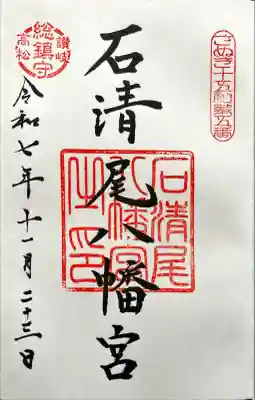 さぬき十五社第五番
石清尾八幡宮
石清尾
八幡宮
之印
讃岐
総鎮守
高松
令和七年十一月二十三日